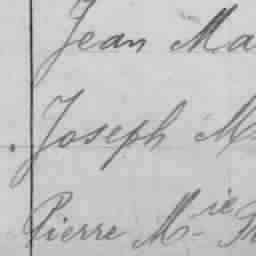 Jean Ma
Joseph M
Pierre M.ie